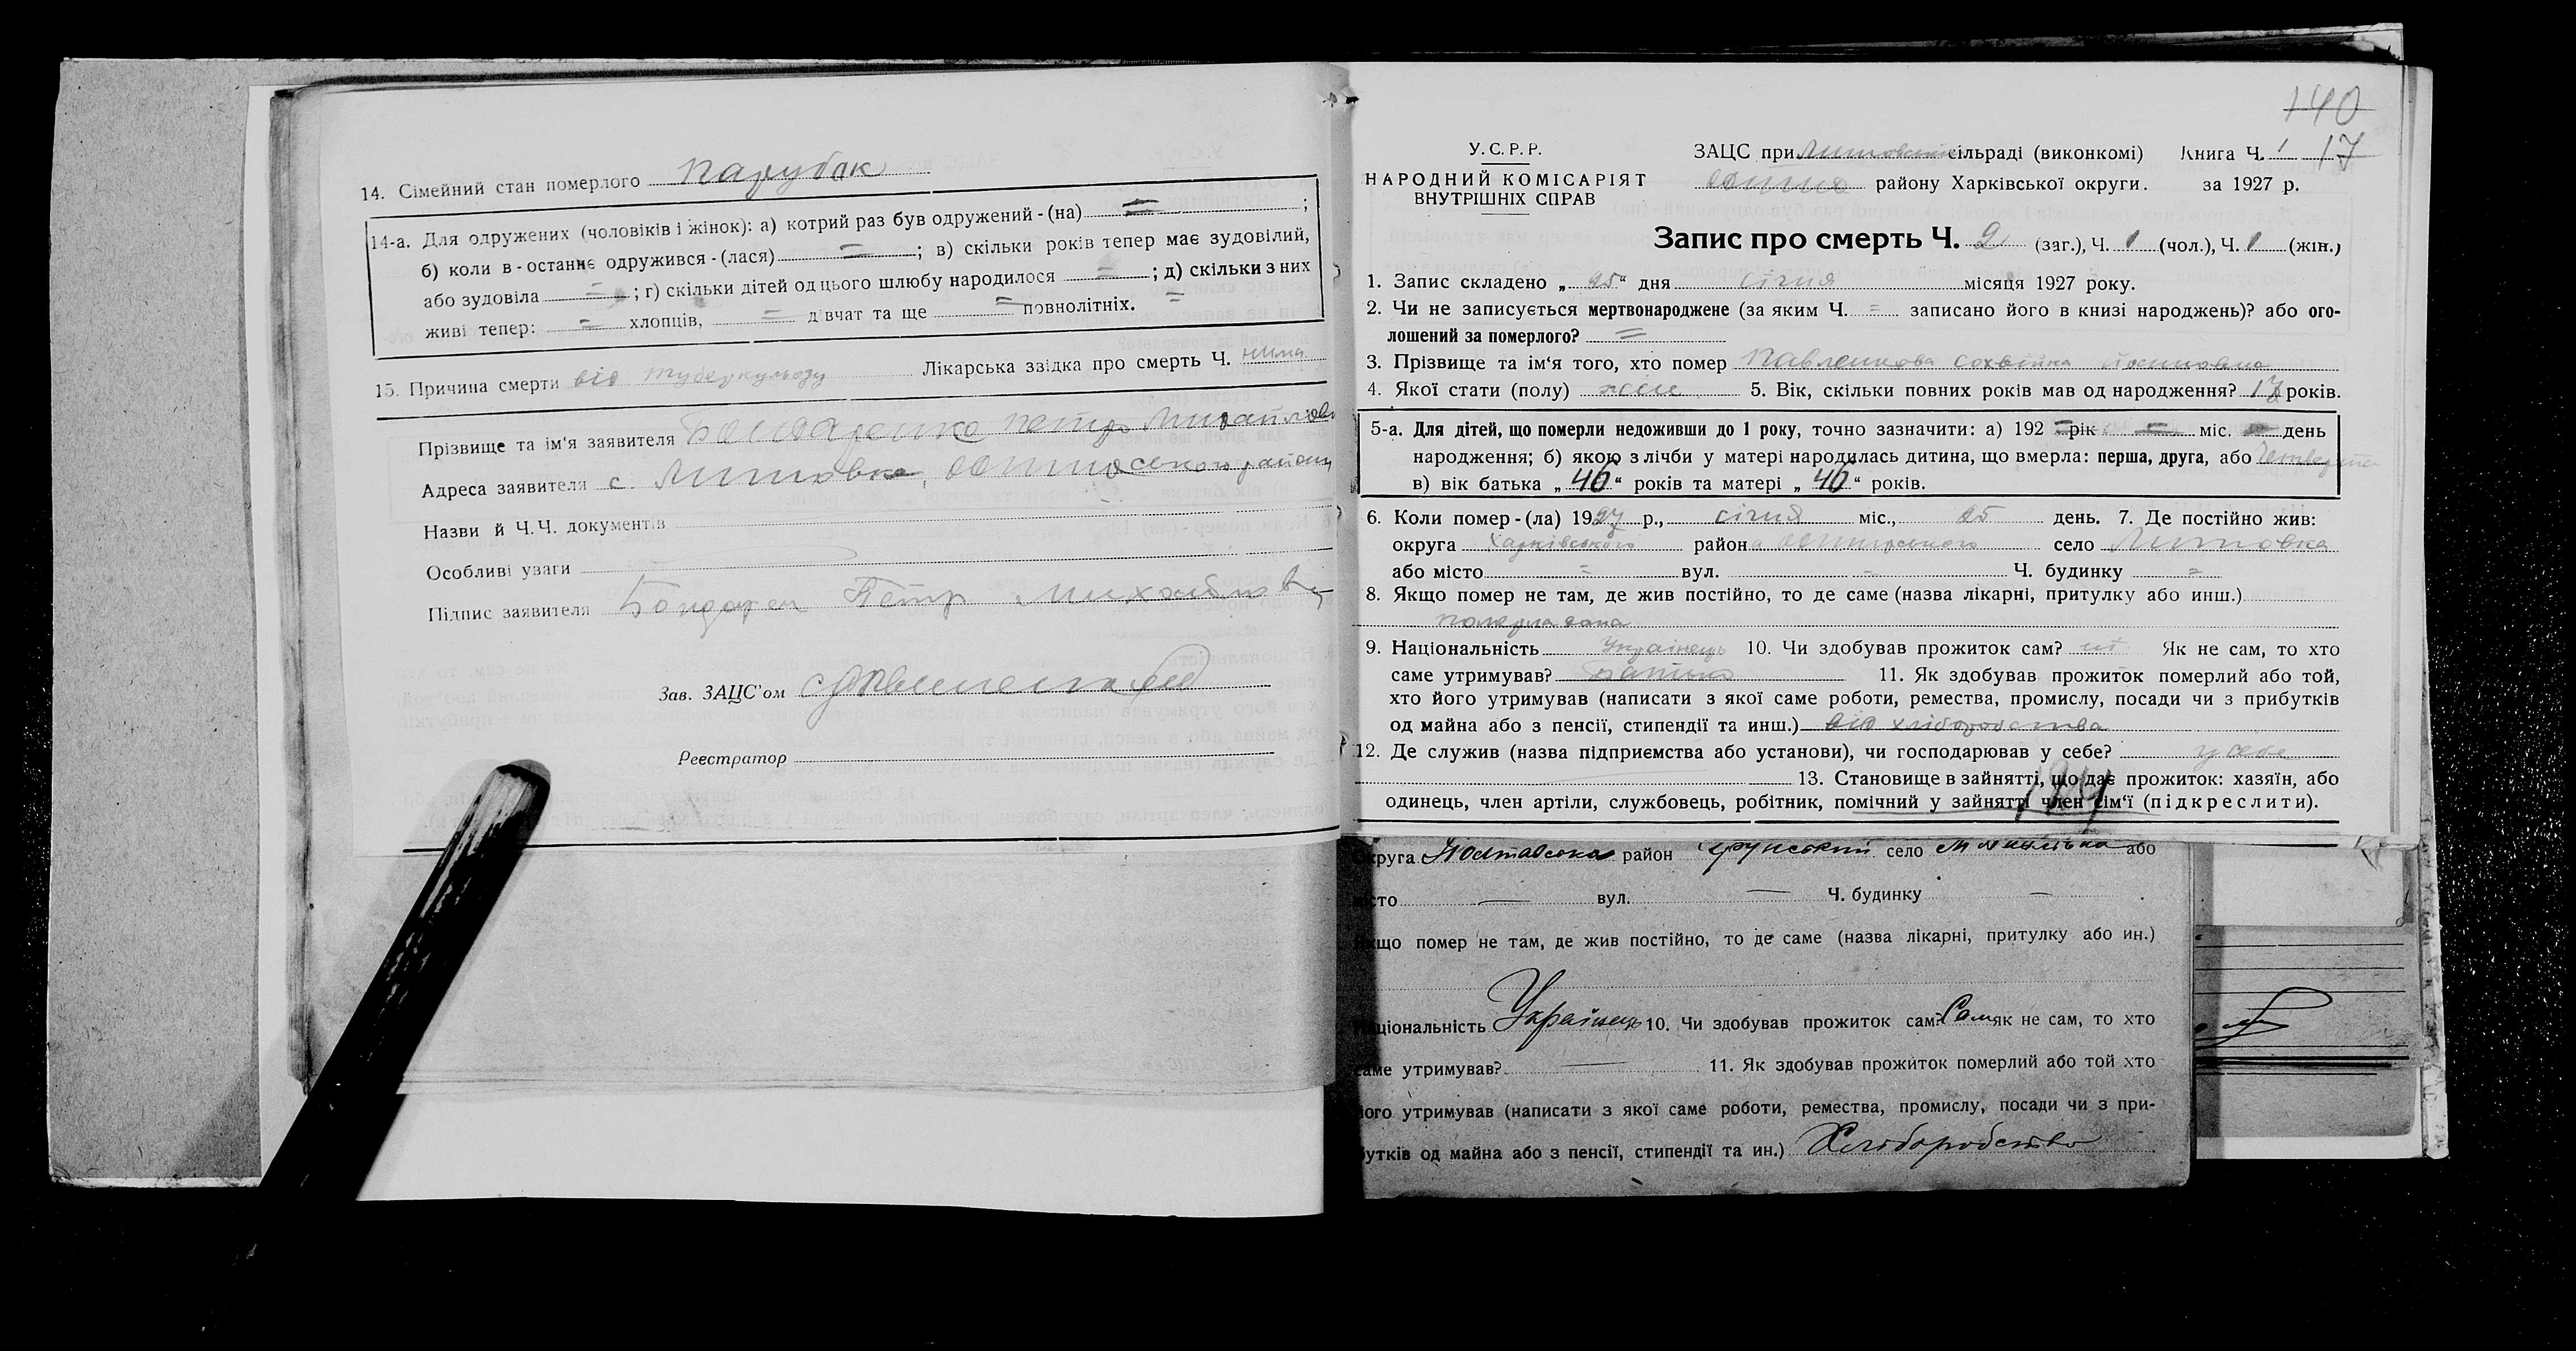 14. Сімейний стан померлого парубок
14-а. Для одружених (чоловіків і жінок): а) котрий раз був одружений-(на) = ;
б) коли в-останнє одружився-(лася) = ; в) скільки років тепер має зудовілий,
або зудовіла = ; г) скільки дітей од цього шлюбу народилося = ; д) скільки з них
живі тепер: = хлопців, = дівчат та ще = повнолітніх. =
15. Причина смерти від туберкульозу Лікарська звідка про смерть Ч. нима
Прізвище та ім'я заявителя Бондаренко Петр
Адреса заявителя с. Липовка, району
Назви й Ч.Ч. документів
Особливі уваги
Підпис заявителя Бондарен Петр
Зав. ЗАЦС'ом
Реєстратор
140
У.С.Р.Р. ЗАЦС при сільраді (виконкомі) Книга Ч. 1 17
НАРОДНИЙ КОМІСАРІЯТ району Харківської округи. за 1927 р.
ВНУТРІШНІХ СПРАВ
Запис про смерть Ч. 2 (заг.), Ч. 1 (чол.), Ч. 1 (жін.)
1. Запис складено „25" дня січня місяця 1927 року.
2. Чи не записується мертвонароджене (за яким Ч. = записано його в книзі народжень)? або ого-
лошений за померлого? =
3. Прізвище та ім'я того, хто помер
4. Якої стати (полу) жін 5. Вік, скільки повних років мав од народження? 17 років.
5-а. Для дітей, що померли недоживши до 1 року, точно зазначити: а) 192 = рік = міс. день
народження; б) якою з лічби у матері народилась дитина, що вмерла: перша, друга, або четверта
в) вік батька „46" років та матері „46" років.
6. Коли помер-(ла) 1927 р., січня міс., 25 день. 7. Де постійно жив:
округа Харківського района село Липовка
або місто = вул. = Ч. будинку =
8. Якщо помер не там, де жив постійно, то де саме (назва лікарні, притулку або инш.)
померла
9. Національність Українець 10. Чи здобував прожиток сам? ні Як не сам, то хто
саме утримував? батько 11. Як здобував прожиток померлий або той,
хто його утримував (написати з якої саме роботи, ремества, промислу, посади чи з прибутків
од майна або з пенсії, стипендії та инш.) від хліборобства
12. Де служив (назва підприємства або установи), чи господарював у себе? у себе
13. Становище в зайнятті, що дає прожиток: хазяїн, або
одинець, член артіли, службовець, робітник, помічний у зайнятті член сім'ї (підкреслити).
округа Полтавська район село або
місто — вул. — Ч. будинку —
Якщо помер не там, де жив постійно, то де саме (назва лікарні, притулку або ин.)
Національність Українець 10. Чи здобував прожиток сам? Сам як не сам, то хто
саме утримував? — 11. Як здобував прожиток померлий або той хто
його утримував (написати з якої саме роботи, ремества, промислу, посади чи з при-
бутків од майна або з пенсії, стипендії та ин.) Хліборобство